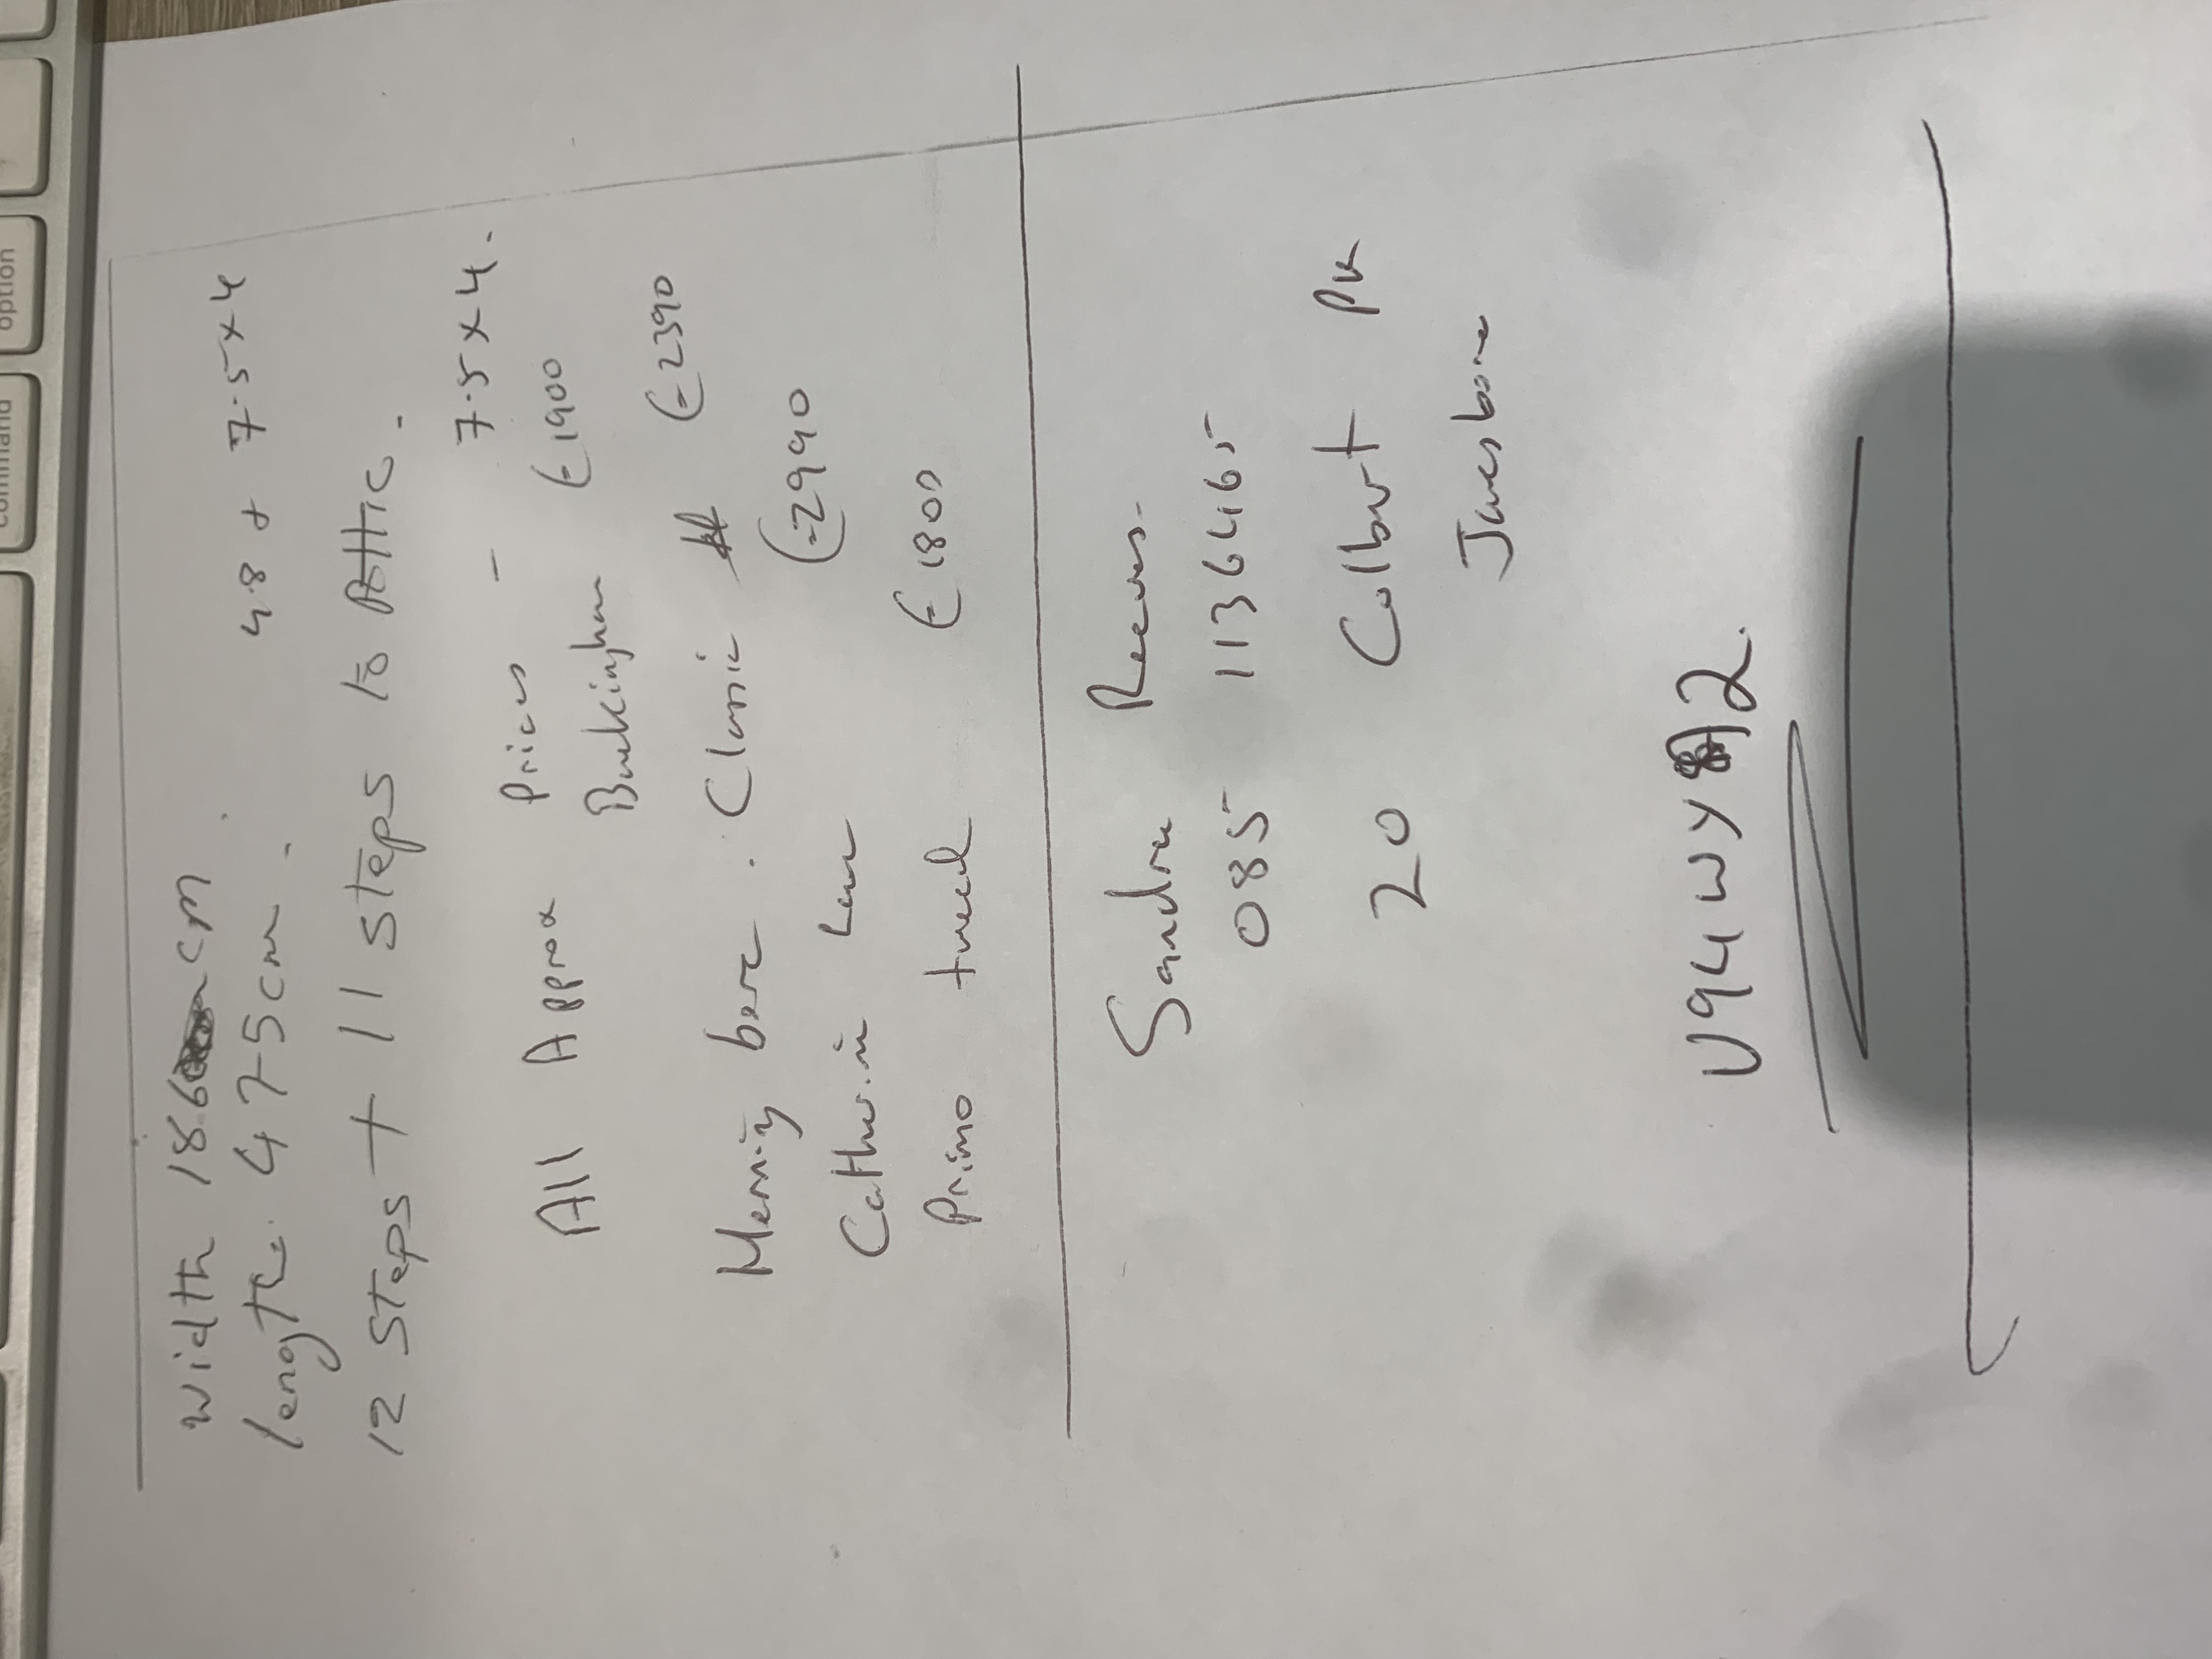 width 186 cm
4.8 + 7.5 x 4
length 475cm.
12 steps + 11 steps to Attic.
7.5 x 4.
All Approx Prices -
Buckingham €1900
Merrig berc. Classic €2390
Catherine Lux €2990
Primo tweed €1800
Sandra Reeves.
085 1136465
20 Colbert Pk
Janesboro
V94 WY82.
option
command